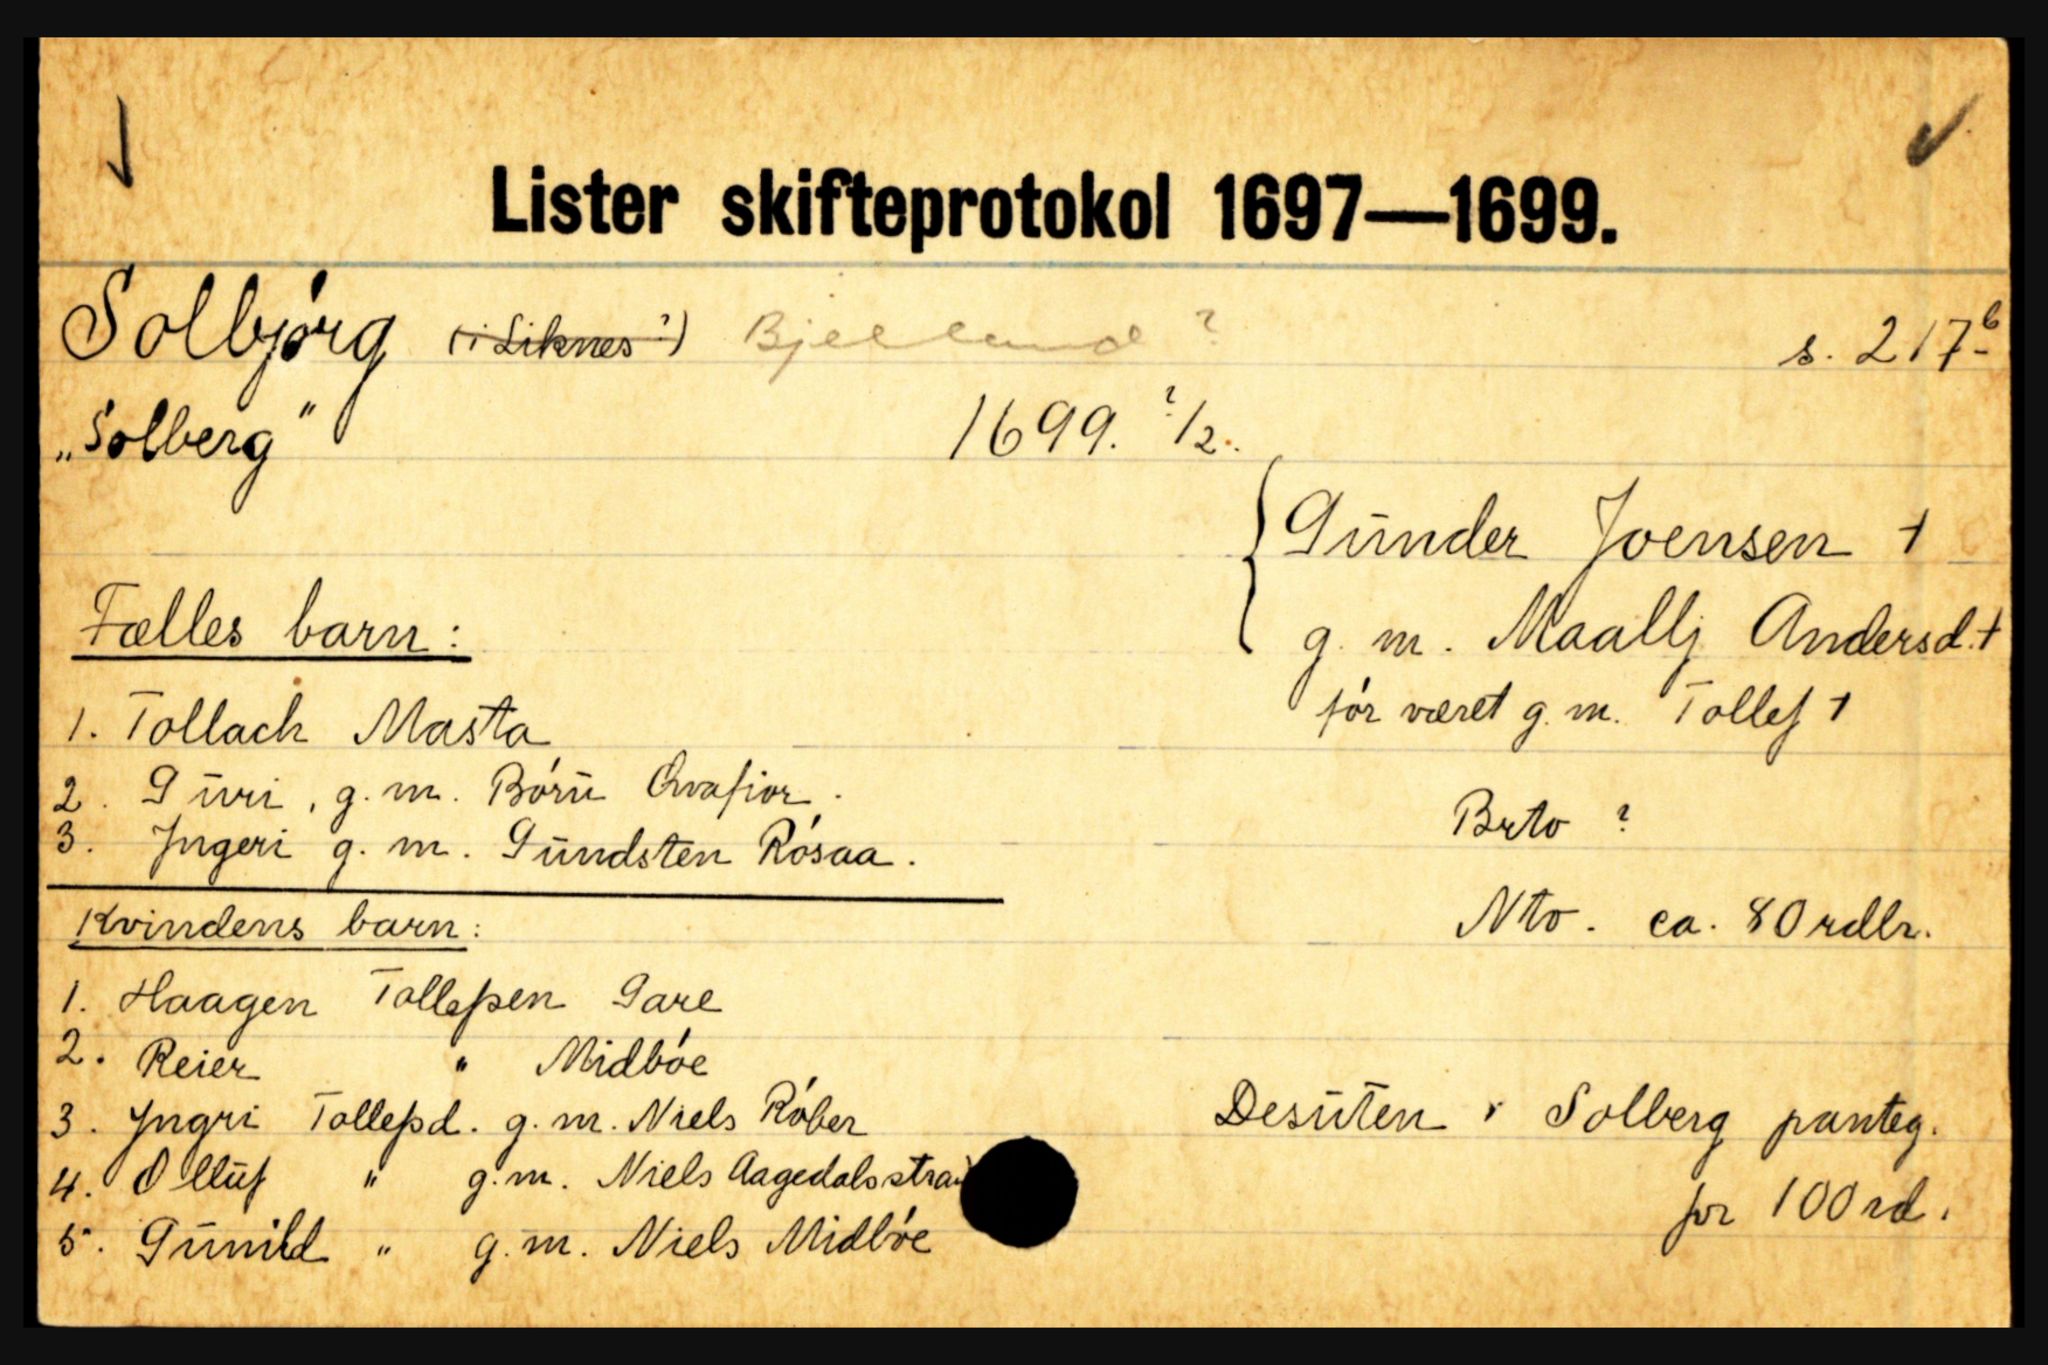 Lister skifteprotokol 1697—1699.
Solbjørg (i Liknes?) Bjelland? s. 217b
„Solberg" 1699. ?/2.
Gunder Joensen †
g. m. Maallj Andersd. †
før været g. m. Tollef †
Fælles barn:
1. Tollach Masta
2. Guri, g. m. Börü Qvafior.
3. Jngeri g. m. Gundsten Røsaa.
Brto ?
Nto. ca. 80 rdlr.
Kvindens barn:
1. Haagen Tollefsen Gare
2. Reier " Midbøe
3. Yngri Tollefsd. g. m. Niels Røber
4. Olluf " g. m. Niels Aagedalsstra
5. Gunild " g. m. Niels Midbøe
Desuten i Solberg panteg.
for 100 rd.